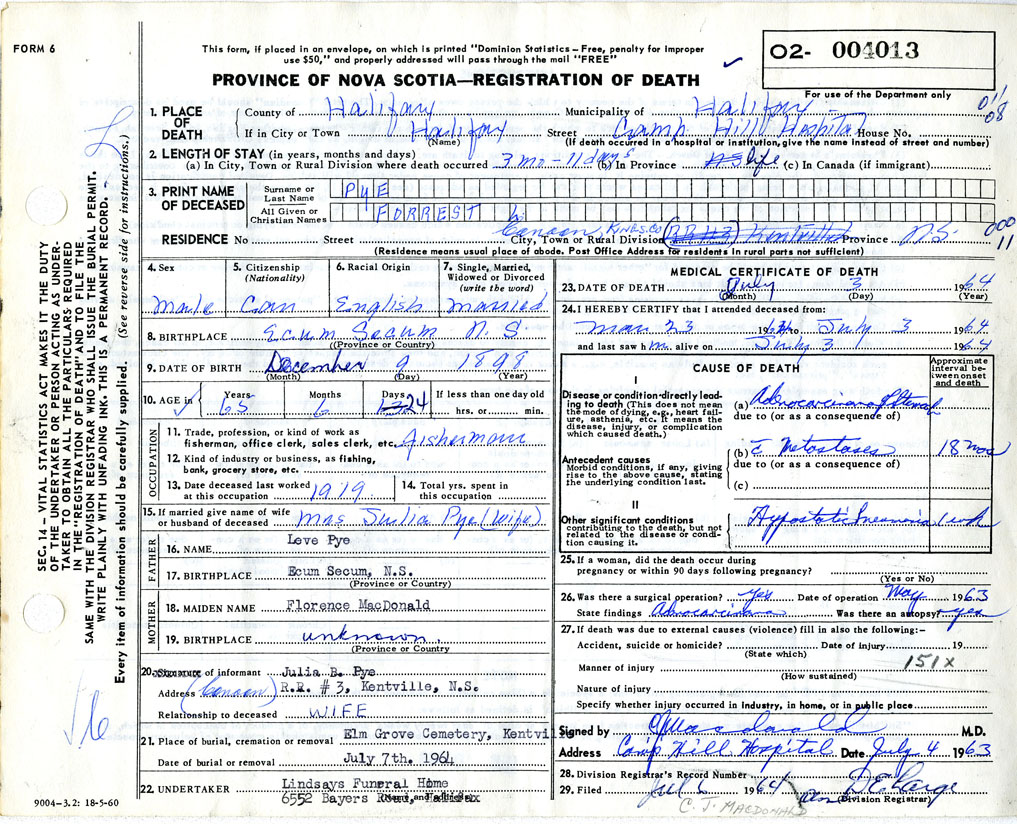 FORM 6
This form, if placed in an envelope, on which is printed "Dominion Statistics – Free, penalty for improper
use $50," and properly addressed will pass through the mail "FREE"
PROVINCE OF NOVA SCOTIA—REGISTRATION OF DEATH
02- 004013
For use of the Department only
SEC. 14 – VITAL STATISTICS ACT MAKES IT THE DUTY
OF THE UNDERTAKER OR PERSON ACTING AS UNDER-
TAKER TO OBTAIN ALL THE PARTICULARS REQUIRED
IN THE "REGISTRATION OF DEATH" AND TO FILE THE
SAME WITH THE DIVISION REGISTRAR WHO SHALL ISSUE THE BURIAL PERMIT.
WRITE PLAINLY WITH UNFADING INK. THIS IS A PERMANENT RECORD. –
Every item of information should be carefully supplied. (See reverse side for instructions.)
1. PLACE OF DEATH County of Halifax Municipality of Halifax 08
If in City or Town Halifax Street Camp Hill Hospital House No.
(Name) (If death occurred in a hospital or institution, give the name instead of street and number)
2. LENGTH OF STAY (in years, months and days)
(a) In City, Town or Rural Division where death occurred 3 mo - 11 days (b) In Province life (c) In Canada (if immigrant)
3. PRINT NAME OF DECEASED
Surname or Last Name PYE
All Given or Christian Names FORREST
Canaan, KINGS. CO 000
RESIDENCE No Street City, Town or Rural Division (RR#3) Kentville Province N.S. 11
(Residence means usual place of abode. Post Office Address for residents in rural parts not sufficient)
4. Sex 5. Citizenship (Nationality) 6. Racial Origin 7. Single, Married, Widowed or Divorced (write the word)
Male Can English Married
8. BIRTHPLACE Ecum Secum N.S.
(Province or Country)
9. DATE OF BIRTH December 9 1898
(Month) (Day) (Year)
10. AGE in Years Months Days If less than one day old
65 6 24 hrs. or min.
OCCUPATION
11. Trade, profession, or kind of work as
fisherman, office clerk, sales clerk, etc. fisherman
12. Kind of industry or business, as fishing,
bank, grocery store, etc.
13. Date deceased last worked at this occupation 1919 14. Total yrs. spent in this occupation
15. If married give name of wife or husband of deceased Mrs Julia Pye (Wife)
FATHER
16. NAME Leve Pye
17. BIRTHPLACE Ecum Secum, N.S.
(Province or Country)
MOTHER
18. MAIDEN NAME Florence MacDonald
19. BIRTHPLACE unknown.
(Province or Country)
20. Signature of informant Julia B. Pye
Address (Canaan) R.R. # 3, Kentville, N.S.
Relationship to deceased WIFE
21. Place of burial, cremation or removal Elm Grove Cemetery, Kentville
Date of burial or removal July 7th. 1964
22. UNDERTAKER Lindsays Funeral Home
6552 Bayers Road, Halifax
9004-3.2: 18-5-60
MEDICAL CERTIFICATE OF DEATH
23. DATE OF DEATH July 3 1964
(Month) (Day) (Year)
24. I HEREBY CERTIFY that I attended deceased from:
Mar 23 1964 to July 3 1964
and last saw him alive on July 3 1964
CAUSE OF DEATH
Approximate interval between onset and death
I
Disease or condition directly lead-
ing to death (This does not mean
the mode of dying, e.g., heart fail-
ure, asthenia, etc. It means the
disease, injury, or complication
which caused death.)
(a) Adenocarcinoma of Stomach
due to (or as a consequence of)
Antecedent causes
Morbid conditions, if any, giving
rise to the above cause, stating
the underlying condition last.
(b) c̄ Metastases 18 mos
due to (or as a consequence of)
(c)
II
Other significant conditions
contributing to the death, but not
related to the disease or condi-
tion causing it.
Hypostatic Pneumonia 1 wk
25. If a woman, did the death occur during
pregnancy or within 90 days following pregnancy?
(Yes or No)
26. Was there a surgical operation? yes Date of operation May 1963
State findings Adenocarcinoma Was there an autopsy? yes
27. If death was due to external causes (violence) fill in also the following:–
Accident, suicide or homicide? Date of injury 19
(State which) 151X
Manner of injury
(How sustained)
Nature of injury
Specify whether injury occurred in industry, in home, or in public place
Signed by Macdonald M.D.
Address Camp Hill Hospital Date July 4 1963
28. Division Registrar's Record Number
29. Filed Jul 6 1964
(Division Registrar)
C. J. MACDONALD